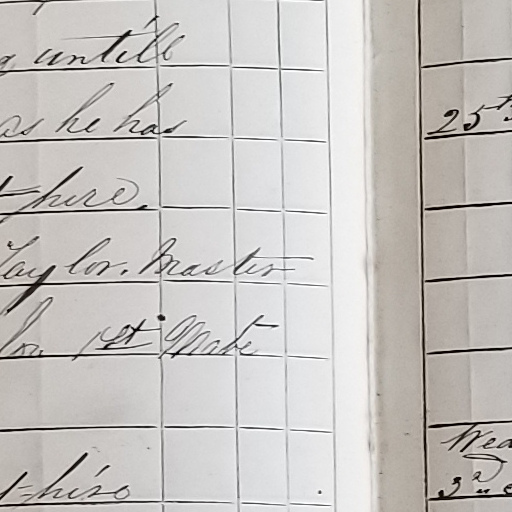 untill
as he has
hire.
Taylor. Master
1st Mate
25th
Wed
3rd